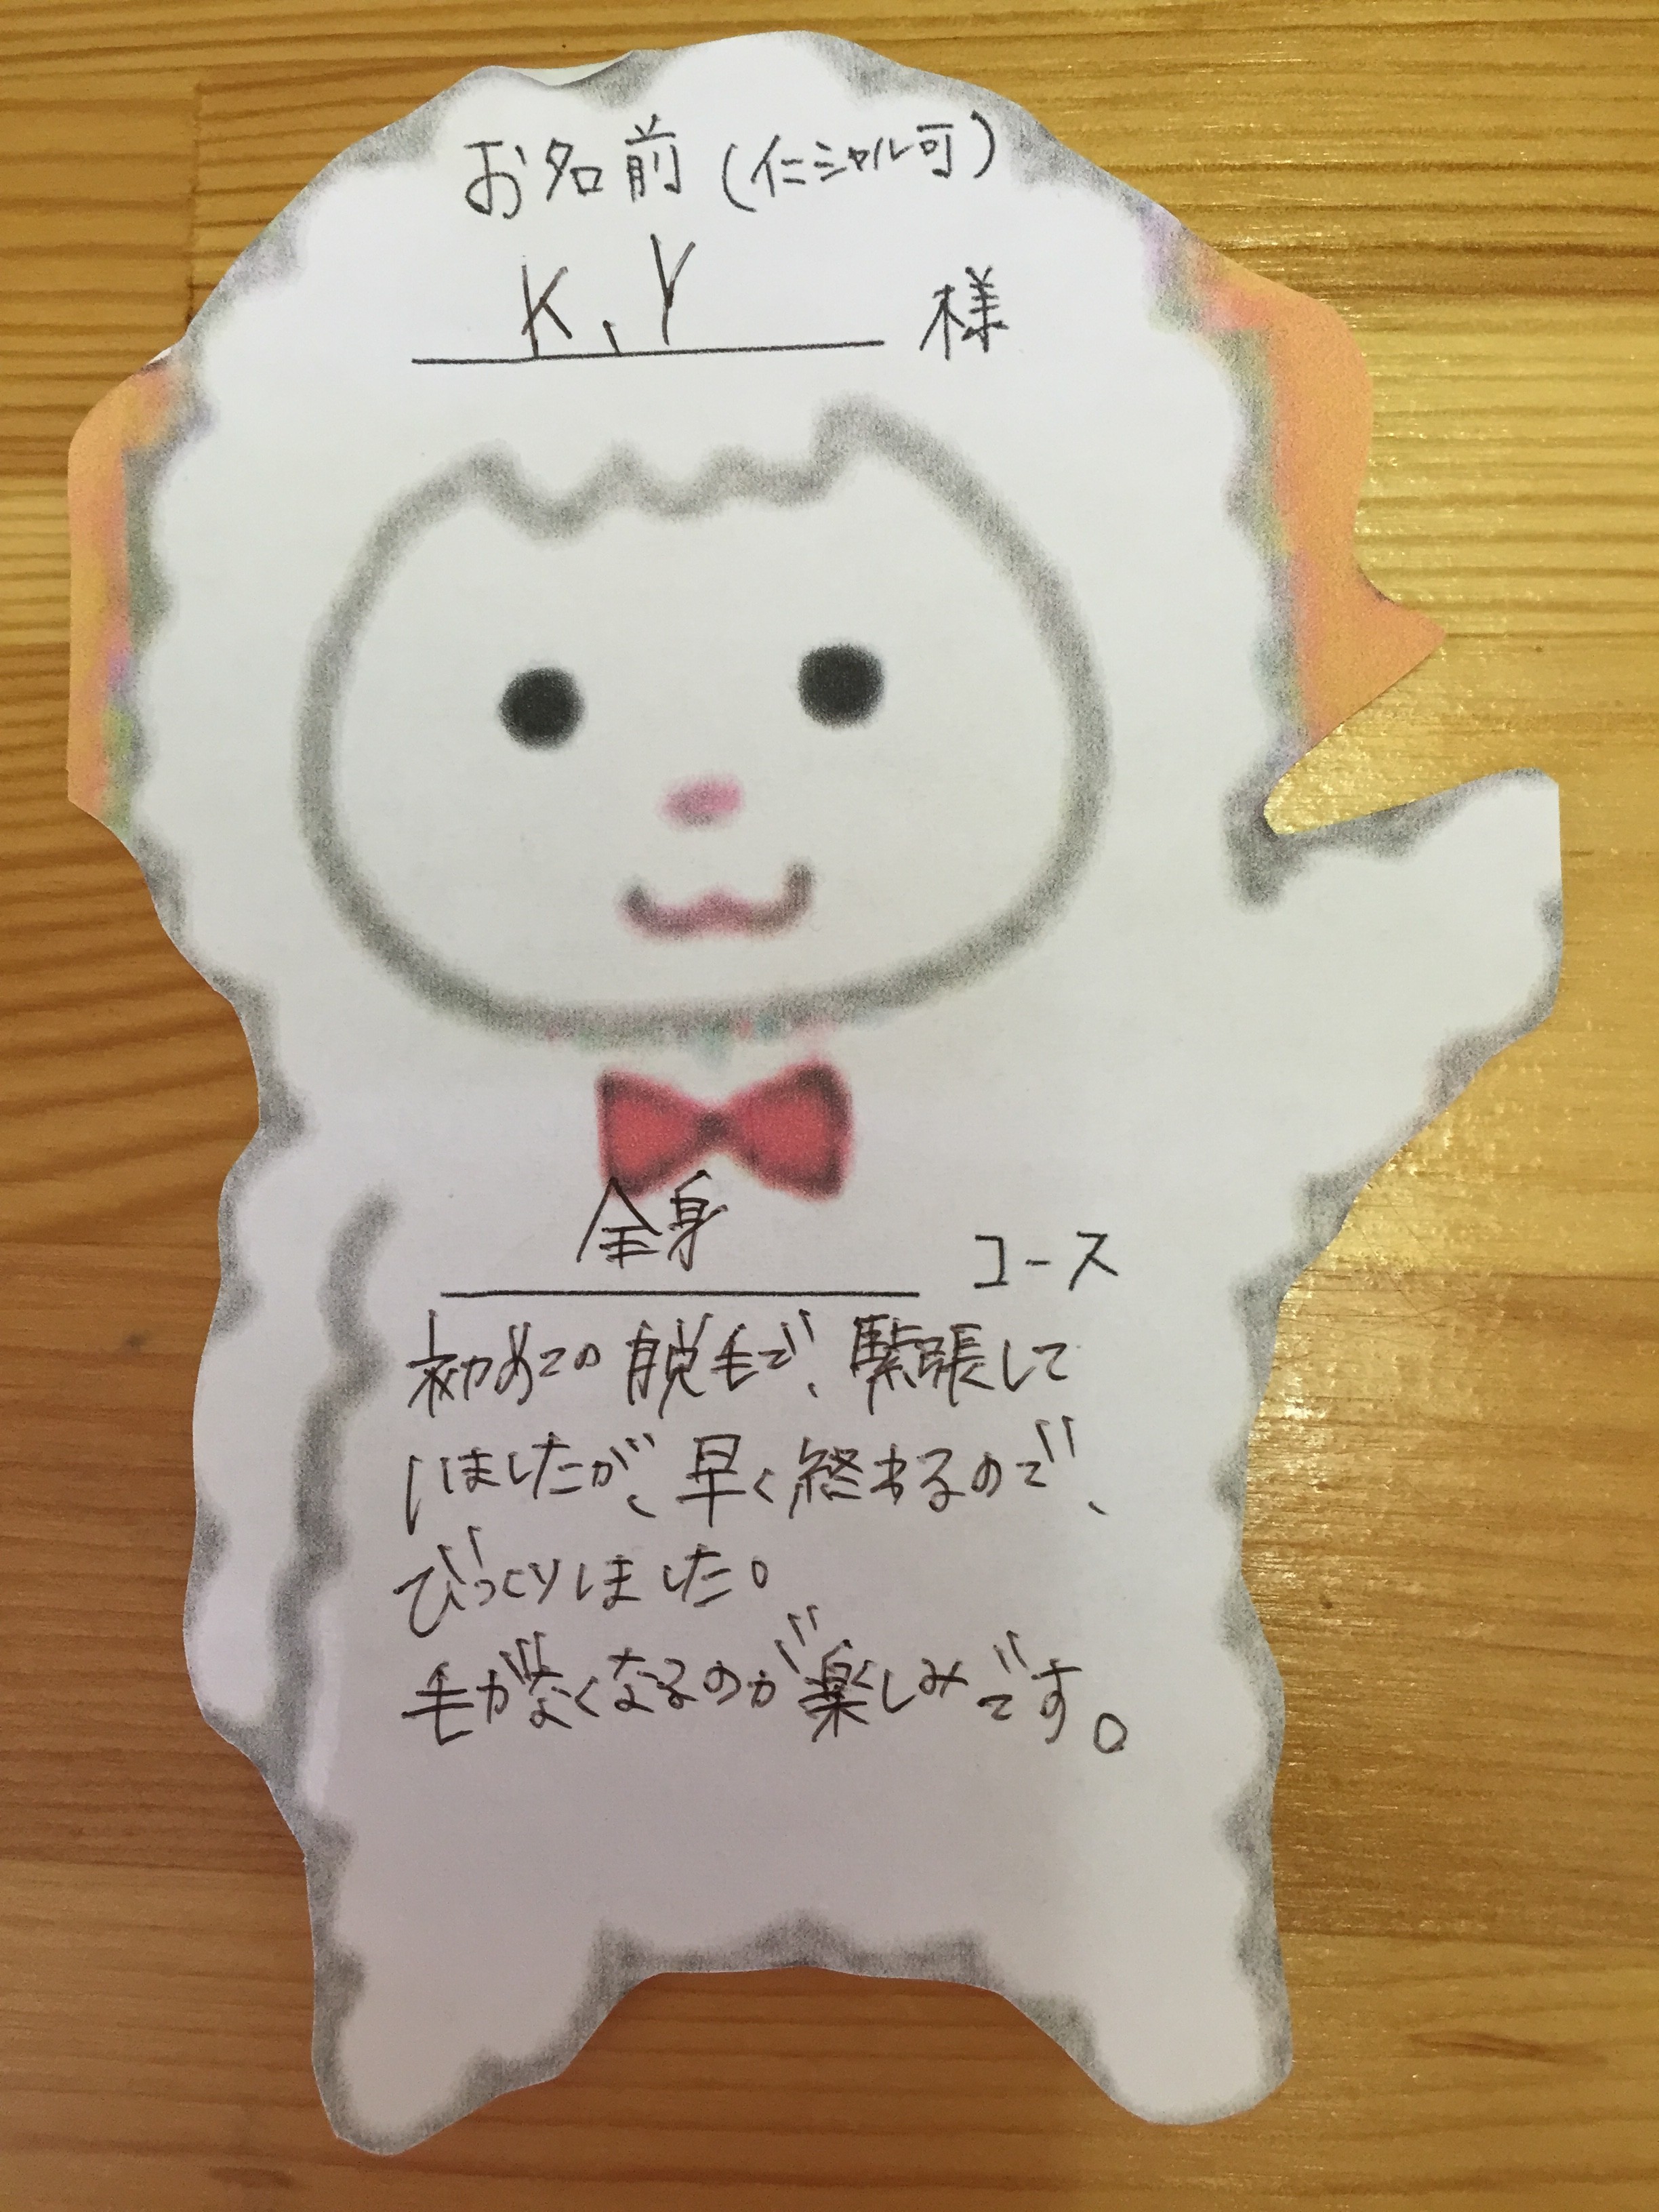 お名前(イニシャル可)
K、Y 様
全身 コース
初めての脱毛で、緊張して
いましたが、早く終わるので、
びっくりしました。
毛がなくなるのが楽しみです。